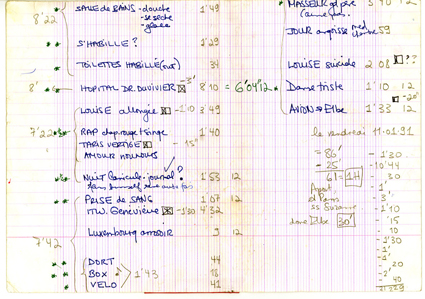 SALLE de BAINS - douche 1'49
- se sèche
- glace
8'22
S'HABILLE? 1'29
TOILETTES HABILLÉ (nuit) 34
HOPITAL DR. DUVIVIER -3' 8'10 = 6'04"12
LOUISE allongée -1'10 3'49
7'22 RAP chaperouge + singe 1'40
PARIS VERTIGE -15"
AMOUR NOUNOURS
NUIT Canicule - journal? 1'53 12
PRISE de SANG 1'07 12
ITW. Geneviève -1'30 4'52
Luxembourg arrosoir 9 12
7'42
DORT 44
BOX 1'43 18
VELO 41
MASSEUR
JOUR angoisse 59
LOUISE suicide 2'08 ??
Danse triste 1'10 12
-20"
AVION + Elbe 1'33 12
le vendredi 11-01-91
= 86'
- 25'
61 = 1H
Appart.
Paris
ss Suzanne
donc Elbe 30'
-1'30
-10"44
-30
-3'
-1'10
-15
-10
-1'30
-1'
-20
-2'
-40